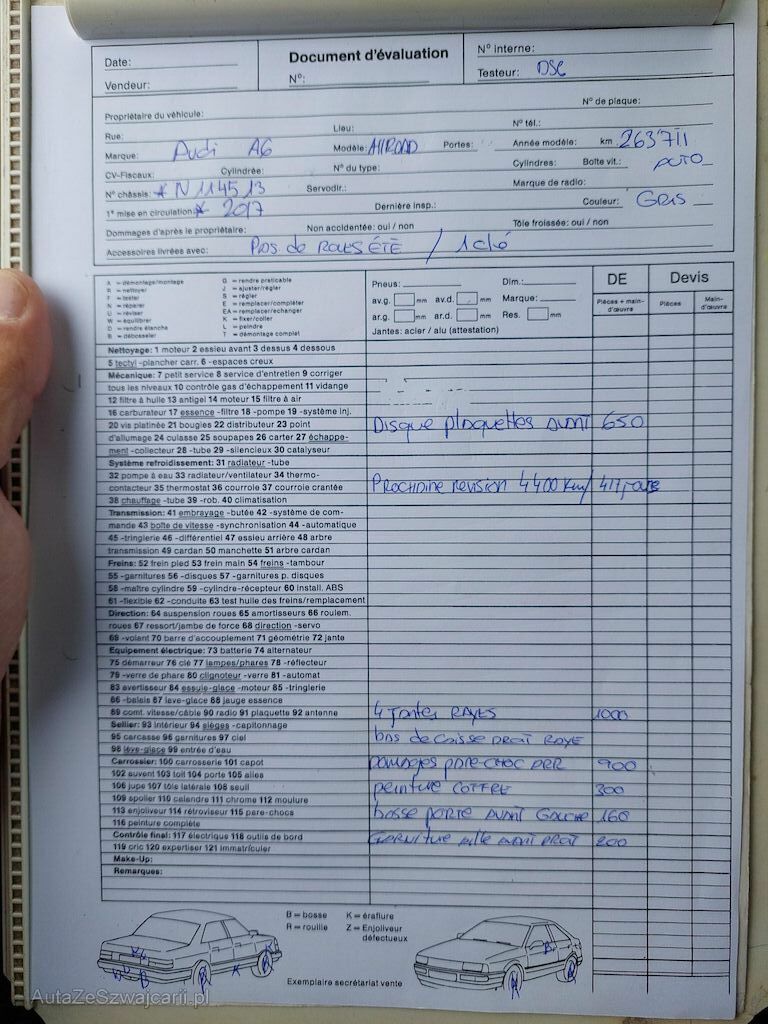 Date:
Vendeur:
Document d'évaluation
N°:
N° interne:
Testeur: DSC
N° de plaque:
Propriétaire du véhicule:
Rue: Lieu: N° tél.:
Marque: Audi A6 Modèle: Allroad Portes: Année modèle: km 263711
CV-Fiscaux: Cylindrée: N° du type: Cylindres: Boîte vit.: AUTO
N° châssis: * N114513 Servodir.: Marque de radio:
1e mise en circulation: * 2017 Dernière insp.: Couleur: GRIS
Dommages d'après le propriétaire: Non accidentée: oui / non Tôle froissée: oui / non
Accessoires livrées avec: Pas de roues été / 1 clé
A = démontage/montage
R = nettoyer
F = tester
N = réparer
U = réviser
W = équilibrer
D = rendre étanche
B = débosseler
G = rendre praticable
J = ajuster/régler
S = régler
E = remplacer/compléter
EA = remplacer/échanger
K = fixer/coller
L = peindre
T = démontage complet
Pneus: Dim.:
av.g. mm av.d. mm Marque:
ar.g. mm ar.d. mm Res. mm
Jantes: acier / alu (attestation)
DE
Pièces + main-d'œuvre
Devis
Pièces Main-d'œuvre
Nettoyage: 1 moteur 2 essieu avant 3 dessus 4 dessous
5 tectyl -plancher carr. 6 -espaces creux
Mécanique: 7 petit service 8 service d'entretien 9 corriger
tous les niveaux 10 contrôle gaz d'échappement 11 vidange
12 filtre à huile 13 antigel 14 moteur 15 filtre à air
16 carburateur 17 essence -filtre 18 -pompe 19 -système inj.
20 vis platinée 21 bougies 22 distributeur 23 point Disque plaquettes avant 650
d'allumage 24 culasse 25 soupapes 26 carter 27 échappe-
ment -collecteur 28 -tube 29 -silencieux 30 catalyseur
Système refroidissement: 31 radiateur -tube
32 pompe à eau 33 radiateur/ventilateur 34 thermo-
contacteur 35 thermostat 36 courroie 37 courroie crantée Prochaine revision 4400 km/ 417 jours
38 chauffage -tube 39 -rob. 40 climatisation
Transmission: 41 embrayage -butée 42 -système de com-
mande 43 boîte de vitesse -synchronisation 44 -automatique
45 -tringlerie 46 -différentiel 47 essieu arrière 48 arbre
transmission 49 cardan 50 manchette 51 arbre cardan
Freins: 52 frein pied 53 frein main 54 freins -tambour
55 -garnitures 56 -disques 57 -garnitures p. disques
58 -maître cylindre 59 -cylindre-récepteur 60 install. ABS
61 -flexible 62 -conduite 63 test huile des freins/remplacement
Direction: 64 suspension roues 65 amortisseurs 66 roulem.
roues 67 ressort/jambe de force 68 direction -servo
69 -volant 70 barre d'accouplement 71 géométrie 72 jante
Equipement électrique: 73 batterie 74 alternateur
75 démarreur 76 clé 77 lampes/phares 78 -réflecteur
79 -verre de phare 80 clignoteur -verre 81 -automat
83 avertisseur 84 essuie-glace -moteur 85 -tringlerie
86 -balais 87 lave-glace 88 jauge essence
89 comt. vitesse/câble 90 radio 91 plaquette 92 antenne 4 jantes RAYES 1000
Sellier: 93 intérieur 94 sièges -capitonnage
95 carcasse 96 garnitures 97 ciel bas de caisse droit RAYE
98 lève-glace 99 entrée d'eau
Carrossier: 100 carrosserie 101 capot dommages pare-choc ARR 900
102 auvent 103 toit 104 porte 105 ailes
106 jupe 107 tôle latérale 108 seuil peinture COFFRE 300
109 spoiler 110 calandre 111 chrome 112 moulure
113 enjoliveur 114 rétroviseur 115 pare-chocs bosse porte avant Gauche 160
116 peinture complète
Contrôle final: 117 électrique 118 outils de bord Garniture aile avant droit 200
119 cric 120 expertiser 121 immatriculer
Make-Up:
Remarques:
B = bosse K = éraflure
R = rouille Z = Enjoliveur
défectueux
Exemplaire secrétariat vente
AutaZeSzwajcarii.pl